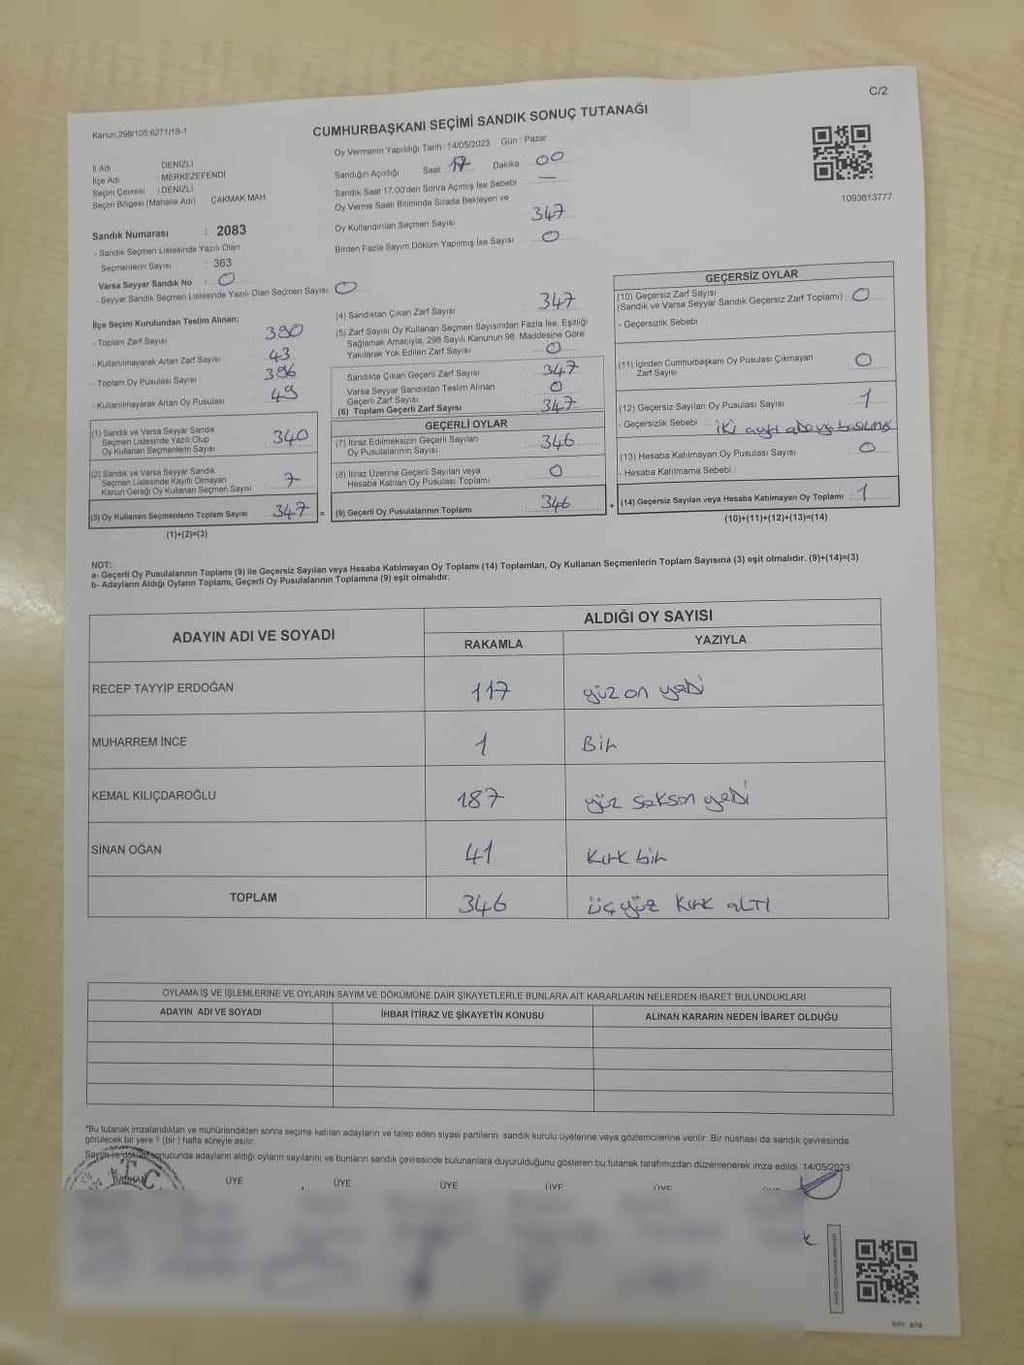 C/2
Kanun:298/105;6271/18-1
CUMHURBAŞKANI SEÇİMİ SANDIK SONUÇ TUTANAĞI
İl Adı : DENİZLİ
İlçe Adı : MERKEZEFENDİ
Seçim Çevresi : DENİZLİ
Seçim Bölgesi (Mahalle Adı) : ÇAKMAK MAH.
Sandık Numarası : 2083
- Sandık Seçmen Listesinde Yazılı Olan
Seçmenlerin Sayısı : 363
Varsa Seyyar Sandık No : 0
- Seyyar Sandık Seçmen Listesinde Yazılı Olan Seçmen Sayısı: 0
Oy Vermenin Yapıldığı Tarih : 14/05/2023 Gün : Pazar
Sandığın Açıldığı Saat 17 Dakika 00
Sandık Saat 17:00'den Sonra Açımış İse Sebebi —
Oy Verme Saati Bitiminde Sırada Bekleyen ve
Oy Kullandırılan Seçmen Sayısı 347
Birden Fazla Sayım Döküm Yapılmış İse Sayısı 0
1093813777
İlçe Seçim Kurulundan Teslim Alınan:
- Toplam Zarf Sayısı 390
- Kullanılmayarak Artan Zarf Sayısı 43
- Toplam Oy Pusulası Sayısı 396
- Kullanılmayarak Artan Oy Pusulası 49
(1) Sandık ve Varsa Seyyar Sandık
Seçmen Listesinde Yazılı Olup
Oy Kullanan Seçmen Sayısı 340
(2) Sandık ve Varsa Seyyar Sandık
Seçmen Listesinde Kayıtlı Olmayan
Kanun Gereği Oy Kullanan Seçmen Sayısı 7
(3) Oy Kullanan Seçmenlerin Toplam Sayısı 347 =
(1)+(2)=(3)
(4) Sandıktan Çıkan Zarf Sayısı 347
(5) Zarf Sayısı Oy Kullanan Seçmen Sayısından Fazla İse, Eşitliği
Sağlamak Amacıyla, 298 Sayılı Kanunun 98. Maddesine Göre
Yakılarak Yok Edilen Zarf Sayısı 0
Sandıkta Çıkan Geçerli Zarf Sayısı 347
Varsa Seyyar Sandıktan Teslim Alınan
Geçerli Zarf Sayısı 0
(6) Toplam Geçerli Zarf Sayısı 347
GEÇERLİ OYLAR
(7) İtiraz Edilmeksizin Geçerli Sayılan
Oy Pusulalarının Sayısı 346
(8) İtiraz Üzerine Geçerli Sayılan veya
Hesaba Katılan Oy Pusulası Toplamı 0
(9) Geçerli Oy Pusulalarının Toplamı 346 +
GEÇERSİZ OYLAR
(10) Geçersiz Zarf Sayısı
(Sandık ve Varsa Seyyar Sandık Geçersiz Zarf Toplamı) 0
- Geçersizlik Sebebi :
(11) İçinden Cumhurbaşkanı Oy Pusulası Çıkmayan
Zarf Sayısı 0
(12) Geçersiz Sayılan Oy Pusulası Sayısı 1
- Geçersizlik Sebebi : iki ayrı adaya basılmış
(13) Hesaba Katılmayan Oy Pusulası Sayısı 0
- Hesaba Katılmama Sebebi :
(14) Geçersiz Sayılan veya Hesaba Katılmayan Oy Toplamı : 1
(10)+(11)+(12)+(13)=(14)
NOT:
a- Geçerli Oy Pusulalarının Toplamı (9) ile Geçersiz Sayılan veya Hesaba Katılmayan Oy Toplamı (14) Toplamları, Oy Kullanan Seçmenlerin Toplam Sayısına (3) eşit olmalıdır. (9)+(14)=(3)
b- Adayların Aldığı Oyların Toplamı, Geçerli Oy Pusulalarının Toplamına (9) eşit olmalıdır.
ADAYIN ADI VE SOYADI
ALDIĞI OY SAYISI
RAKAMLA YAZIYLA
RECEP TAYYİP ERDOĞAN 117 yüz on yedi
MUHARREM İNCE 1 Bir
KEMAL KILIÇDAROĞLU 187 yüz seksen yedi
SİNAN OĞAN 41 Kırk bir
TOPLAM 346 üç yüz kırk altı
OYLAMA İŞ VE İŞLEMLERİNE VE OYLARIN SAYIM VE DÖKÜMÜNE DAİR ŞİKAYETLERLE BUNLARA AİT KARARLARIN NELERDEN İBARET BULUNDUKLARI
ADAYIN ADI VE SOYADI İHBAR İTİRAZ VE ŞİKAYETİN KONUSU ALINAN KARARIN NEDEN İBARET OLDUĞU
*Bu tutanak imzalandıktan ve mühürlendikten sonra seçime katılan adayların ve talep eden siyasi partilerin sandık kurulu üyelerine veya gözlemcilerine verilir. Bir nüshası da sandık çevresinde
görülecek bir yere 1 (bir ) hafta süreyle asılır.
Sayım ve döküm sonucunda adayların aldığı oyların sayılarını ve bunların sandık çevresinde bulunanlara duyurulduğunu gösteren bu tutanak tarafımızdan düzenlenerek imza edildi. 14/05/2023
T.C.
BAŞKAN ÜYE ÜYE ÜYE ÜYE ÜYE